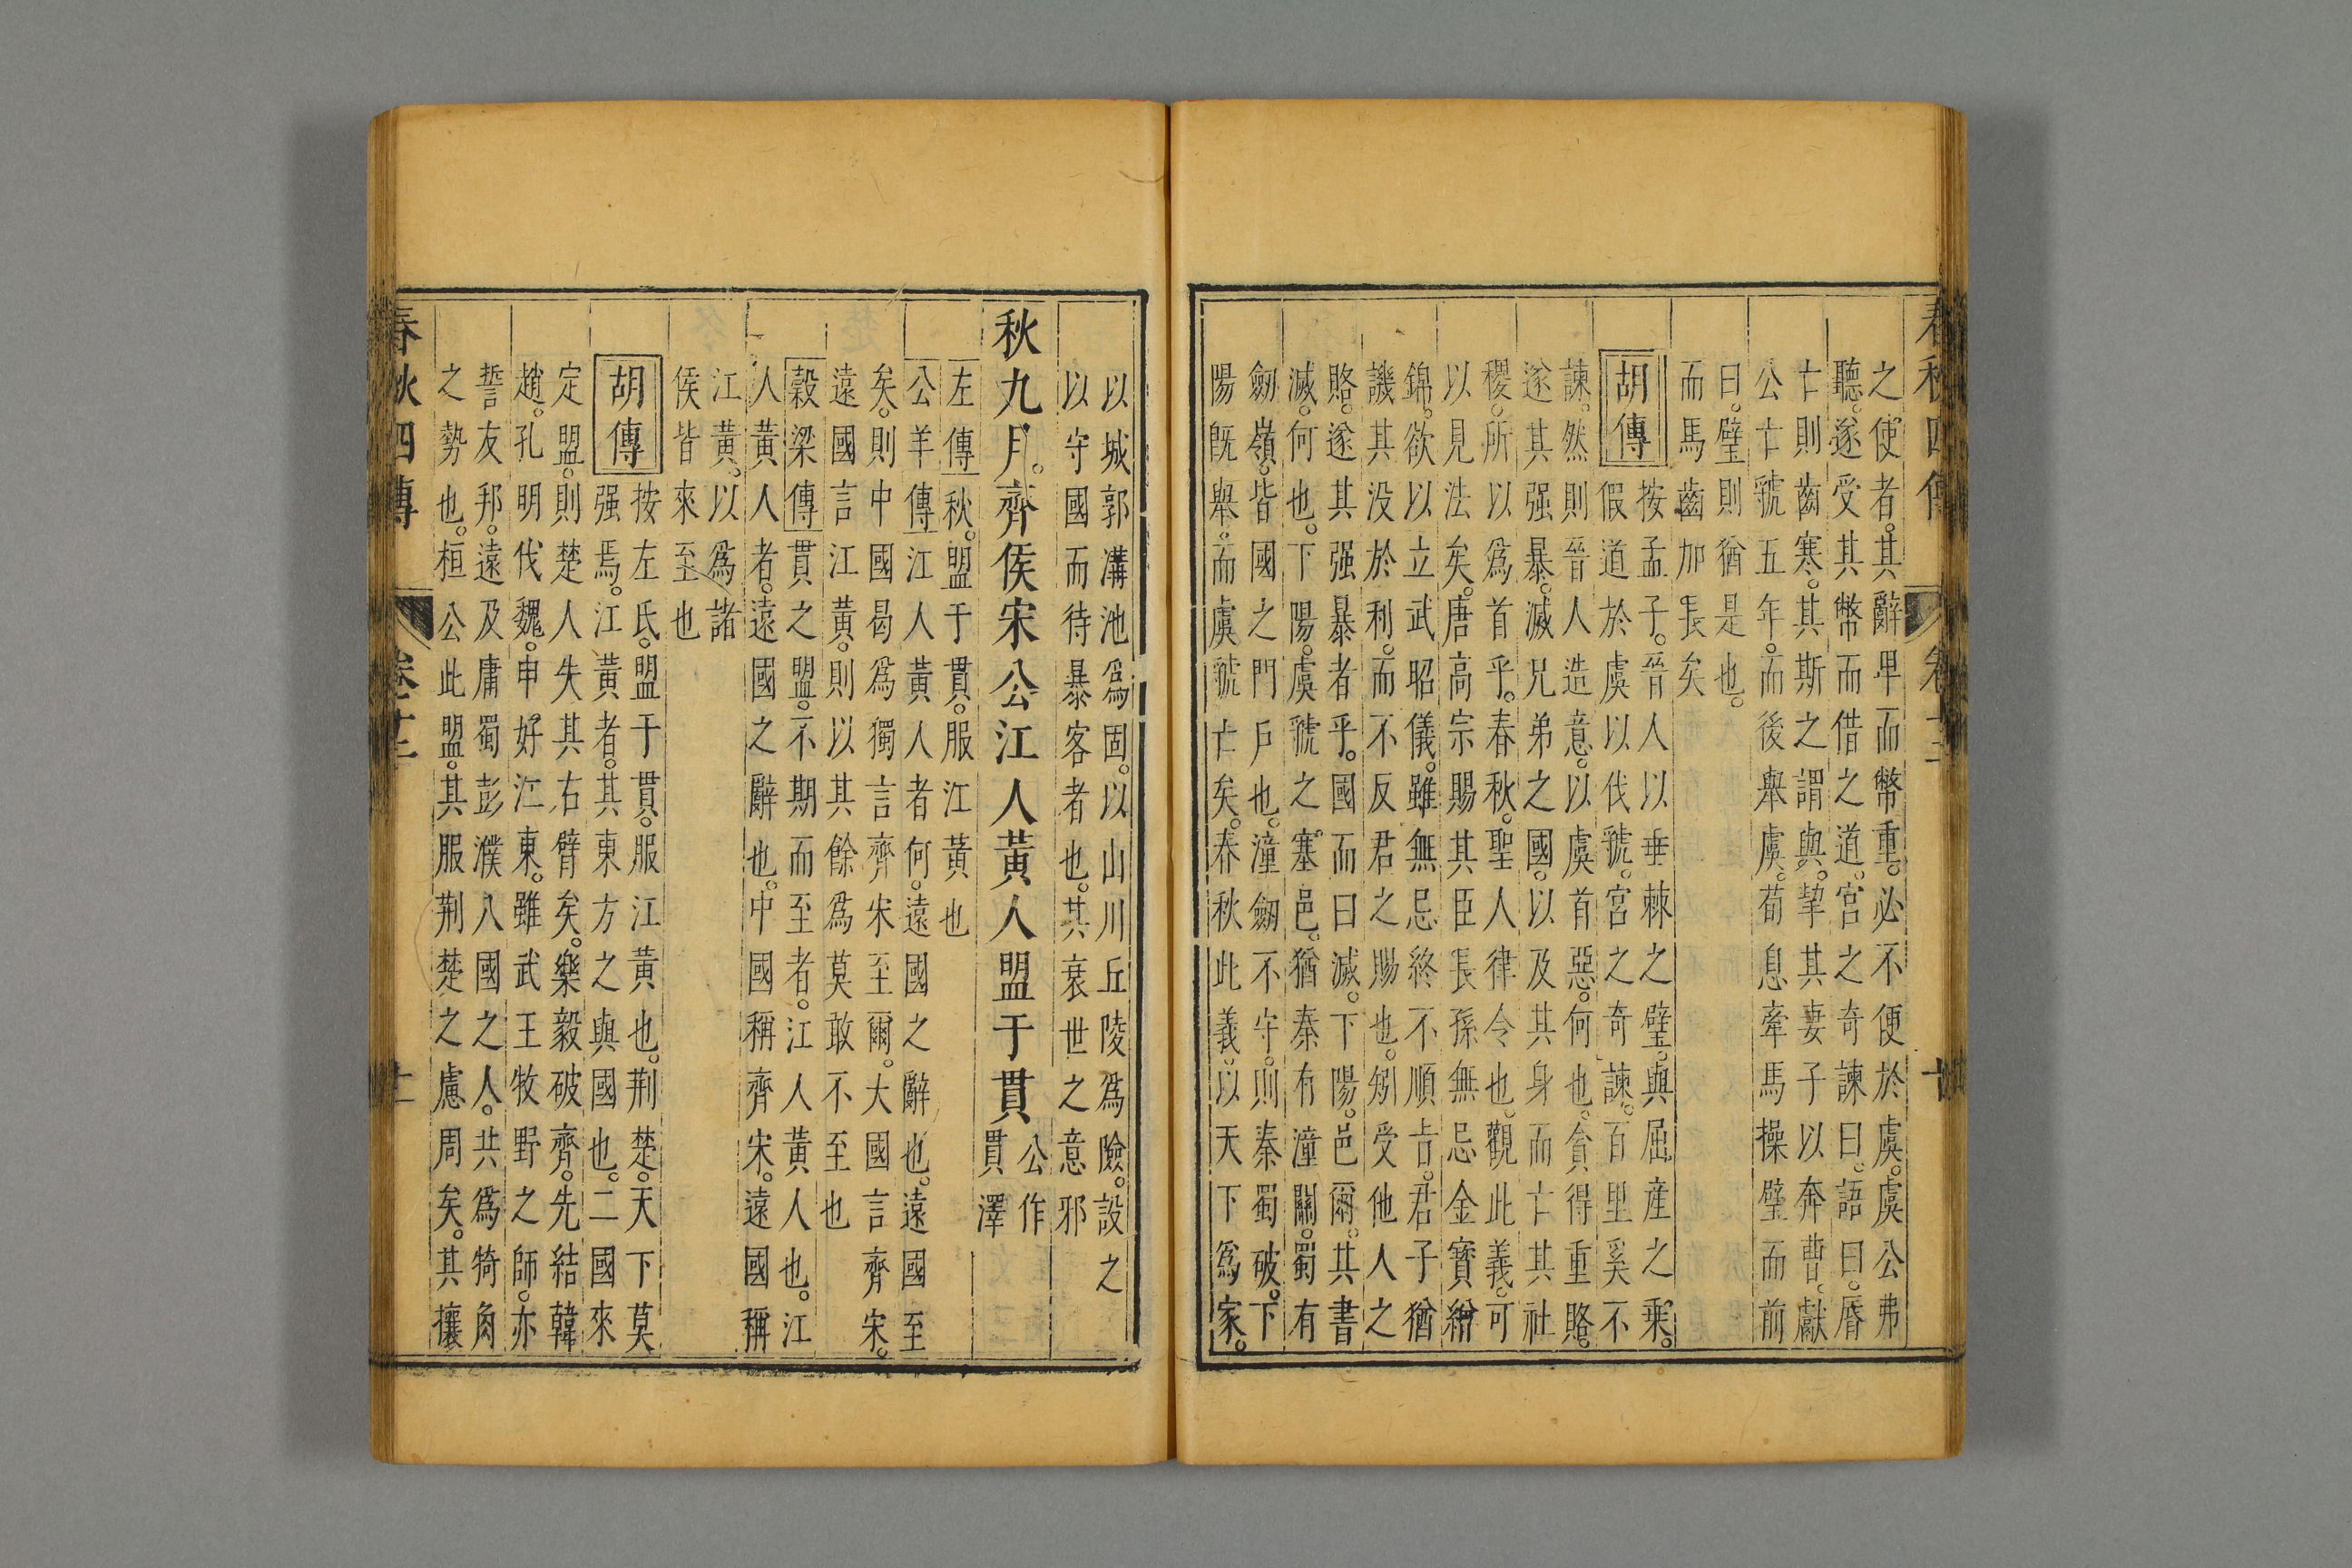 春秋四傳 卷十二
之使者。其辭卑而幣重。必不便於虞。虞公弗
聽。遂受其幣而借之道。宮之奇諫曰。語曰。脣
亡則齒寒。其斯之謂與。挈其妻子以奔曹。獻
公亡虢五年。而後舉虞。荀息牽馬操璧而前
曰。璧則猶是也。
而馬齒加長矣
胡傳
按孟子。晉人以垂棘之璧。與屈產之乘。
假道於虞以伐虢。宮之奇諫。百里奚不
諫。然則晉人造意。以虞首惡。何也。貪得重賂。
遂其强暴。滅兄弟之國。以及其身而亡其社
稷。所以爲首乎。春秋。聖人律令也。觀此義。可
以見法矣。唐高宗賜其臣長孫無忌金寶繒
錦。欲以立武昭儀。雖無忌終不順旨。君子猶
譏其没於利。而不反君之賜也。矧受他人之
賂。遂其强暴者乎。國而曰滅。下陽。邑爾。其書
滅。何也。下陽。虞虢之塞邑。猶秦有潼關。蜀有
劒嶺。皆國之門戶也。潼劒不守。則秦蜀破。下
陽旣舉。而虞虢亡矣。春秋此義。以天下爲家。
以城郭溝池爲固。以山川丘陵爲險。設之
以守國而待暴客者也。其衰世之意邪
秋九月。齊侯宋公江人黃人盟于貫
公作
貫澤
左傳 秋。盟于貫。服江黃也
公羊傳 江人黃人者何。遠國之辭也。遠國至
矣。則中國曷爲獨言齊宋至爾。大國言齊宋。
遠國言江黃。則以其餘爲莫敢不至也
穀梁傳 貫之盟。不期而至者。江人黃人也。江
人黃人者。遠國之辭也。中國稱齊宋。遠國稱
江黃。以爲諸
侯皆來至也
胡傳
按左氏。盟于貫。服江黃也。荆楚。天下莫
强焉。江黃者。其東方之與國也。二國來
定盟。則楚人失其右臂矣。樂毅破齊。先結韓
趙。孔明伐魏。申好江東。雖武王牧野之師。亦
誓友邦。遠及庸蜀彭濮八國之人。共爲犄角
之勢也。桓公此盟。其服荆楚之慮周矣。其攘
春秋四傳 卷十二 十一